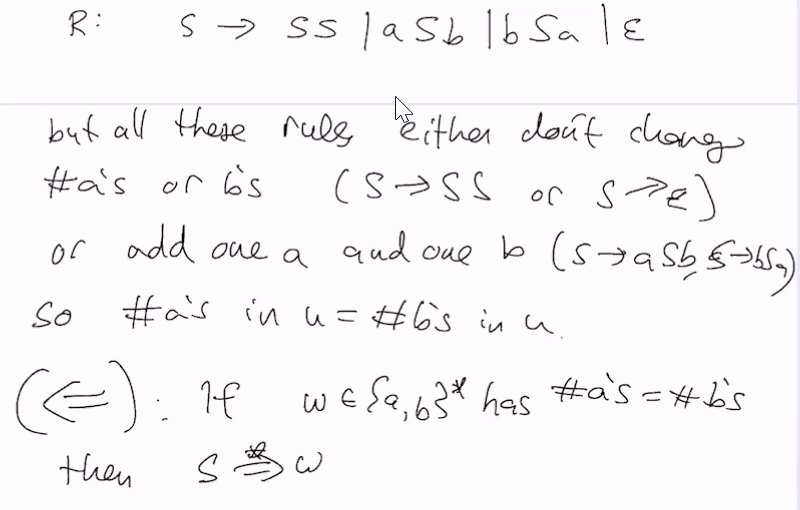 R: S → SS | aSb | bSa | ε
but all these rules either don't change
#a's or b's (S → SS or S → ε)
or add one a and one b (S → aSb, S → bSa)
So #a's in u = #b's in u.
(⇐): If w ∈ {a,b}* has #a's = #b's
then S ⇒* w